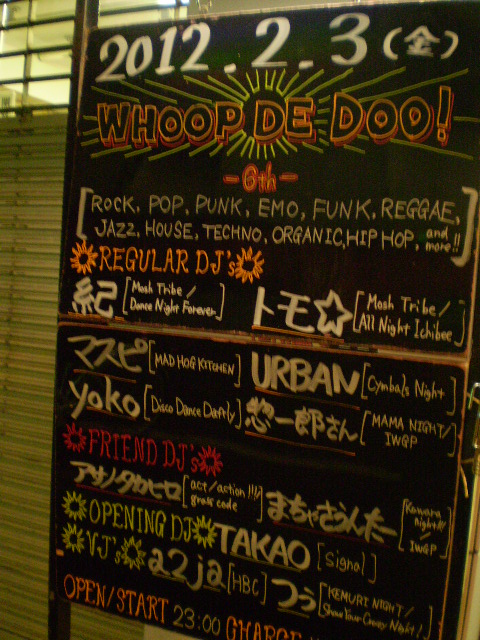 2012.2.3(金)
WHOOP DE DOO!
-6th-
[ROCK, POP, PUNK, EMO, FUNK, REGGAE,
JAZZ, HOUSE, TECHNO, ORGANIC, HIP HOP, and more!!]
REGULAR DJ's
紀[Mosh Tribe/Dance Night Forever] トモ☆[Mosh Tribe/All Night Ichibee]
マスピ[MAD HOG KITCHEN] URBAN[Cymbals Night]
yoko[Disco Dance Daftly] 惣一郎さん[MAMA NIGHT/IWGP]
FRIEND DJ's
アサノタカヒロ[act/action!!!/grass code] まちゃさんたー[Kawara night!!/IWGP]
OPENING DJ TAKAO[Signal]
VJ's a2ja[HBC] つぅ[KEMURI NIGHT/Show Your Crazy Night]
OPEN/START 23:00 CHARGE